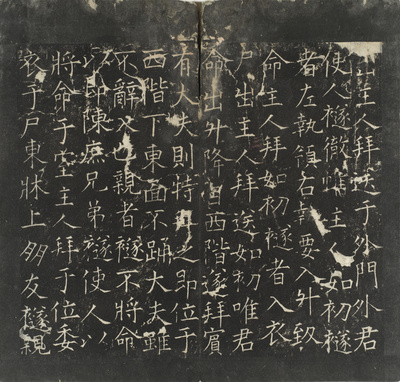 主人拜送于外門外君
使人襚徹帷主人如初襚
者左執領右執要入升致
命主人拜如初襚者入衣
尸出主人拜送如初唯君
命出升降自西階遂拜賓
有大夫則特拜之即位于
西階下東面不踊大夫雖
不辭入也親者襚不將命
以即陳庶兄弟襚使人以
將命于室主人拜于位委
衣于尸東牀上朋友襚親